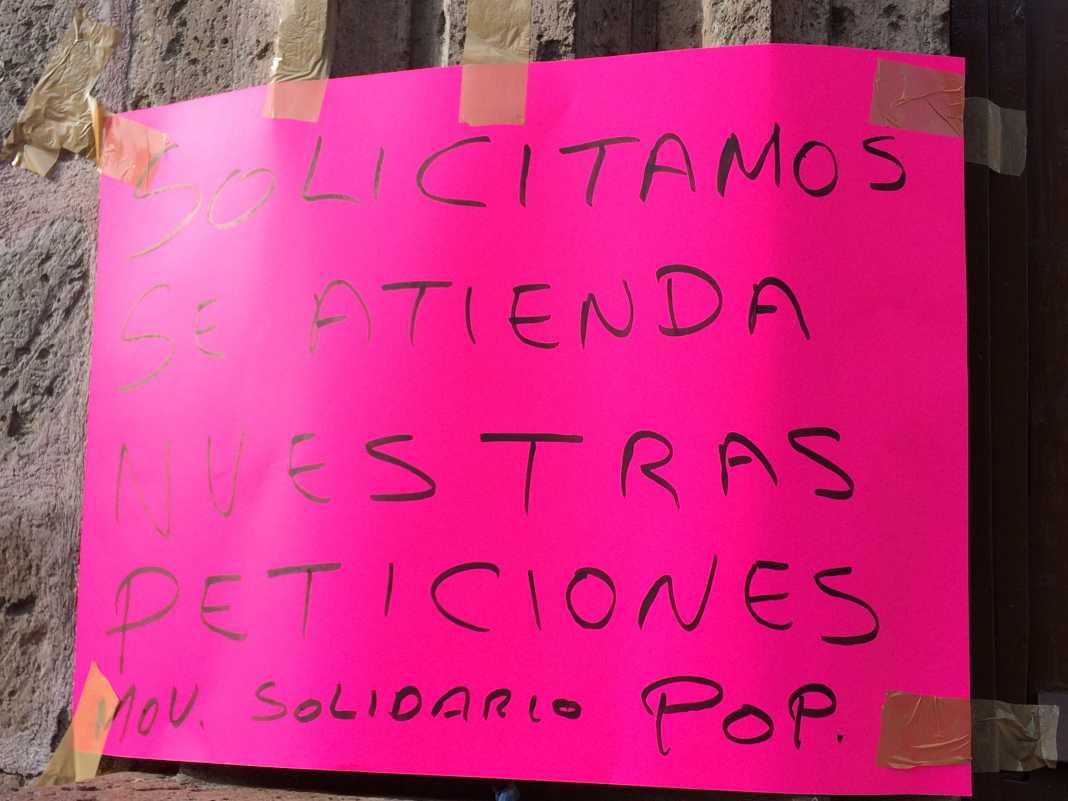 SOLICITAMOS
SE ATIENDA
NUESTRAS
PETICIONES
MOV. SOLIDARIO POP.